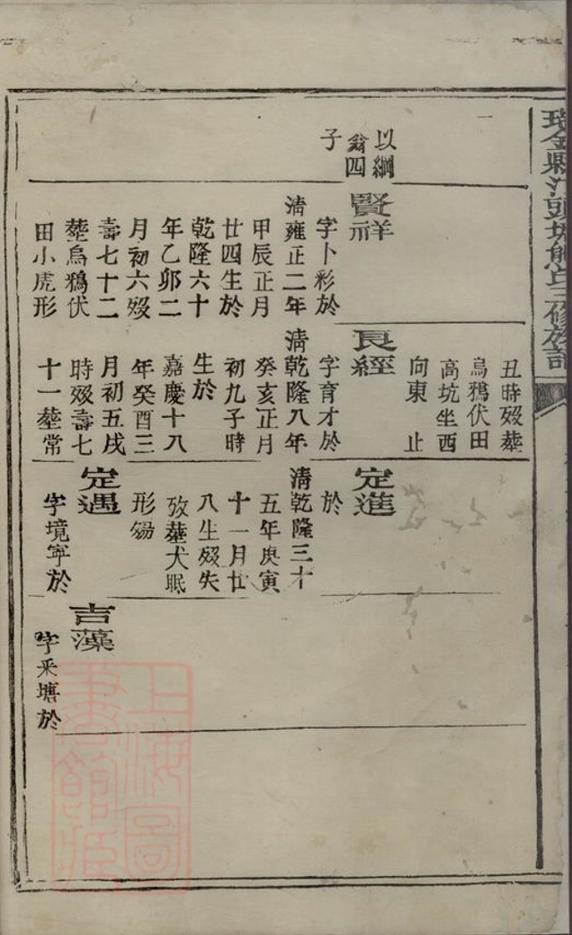 以綱
翁四
子
賢祥
字卜彩於
清雍正二年
甲辰正月
廿四生於
乾隆六十
年乙卯二
月初六殁
壽七十二
塟烏鴉伏
田小虎形
丑時殁塟
烏鴉伏田
高坑坐西
向東 止
良經
字育才於
清乾隆八年
癸亥正月
初九子時
生於
嘉慶十八
年癸酉三
月初五戌
時殁壽七
十一塟常
定進
於
清乾隆三十
五年庚寅
十一月廿
八生殁失
攷塟犬眠
形
定遇
字境寜於
吉藻
字采塘於
上海圖
書館